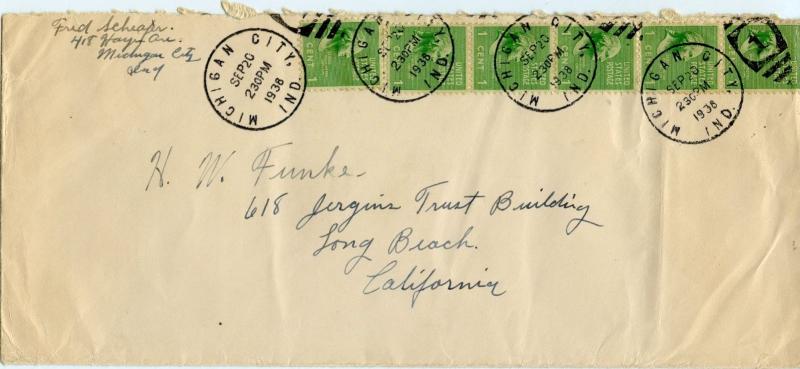 Fred Schaefer.
418 Hayes Ave.
Michigan City
Ind
MICHIGAN CITY, IND.
SEP 20
230PM
1938
MICHIGAN CITY, IND.
SEP 20
230PM
1938
MICHIGAN CITY, IND.
SEP 20
230PM
1938
MICHIGAN CITY, IND.
SEP 20
230PM
1938
1 CENT 1
UNITED STATES POSTAGE
1 CENT 1
UNITED STATES POSTAGE
1 CENT 1
H. W. Funke.
618 Jergins Trust Building
Long Beach.
California